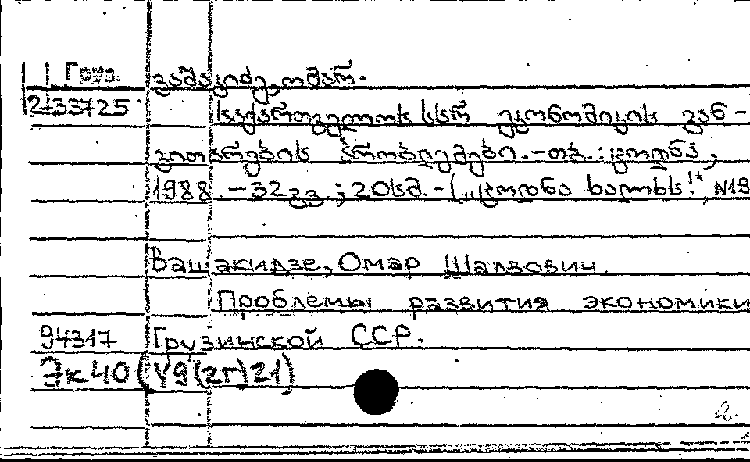 Груз. ვაშაკიძე, ომარ.
2133725 საქართველოს სსრ ეკონომიკის გან-
ვითარების პრობლემები. - თბ.: ცოდნა,
1988. - 32 გვ.; 20სმ. - („ცოდნა ხალხს!“, N19
Вашакидзе, Омар Шалвович.
Проблемы развития экономики
94317 Грузинской ССР.
Эк40 (У9(2Г)21)